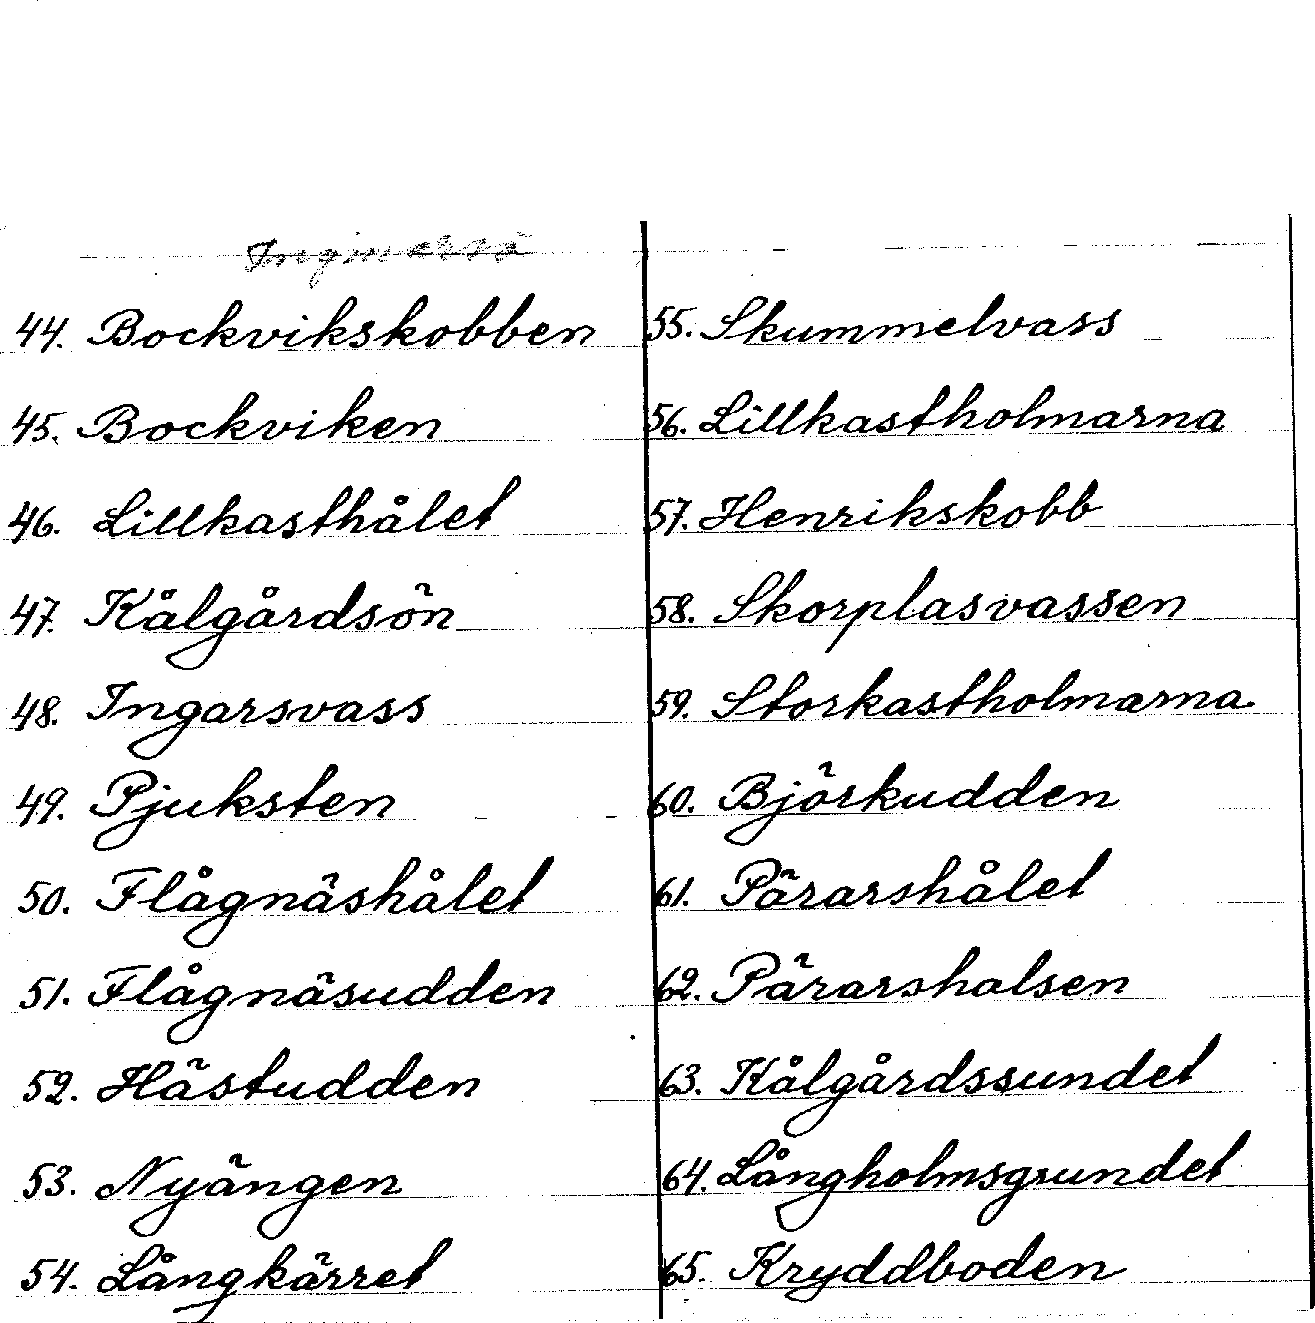 Ingmarsö
44. Bockvikskobben
45. Bockviken
46. Lillkasthålet
47. Kålgårdsön
48. Ingarsvass
49. Pjuksten
50. Flågnäshålet
51. Flågnäsudden
52. Hästudden
53. Nyängen
54. Långkärret
55. Skummelvass
56. Lillkastholmarna
57. Henrikskobb
58. Skorplasvassen
59. Storkastholmarna
60. Björkudden
61. Pärarshålet
62. Pärarshalsen
63. Kålgårdssundet
64. Långholmsgrundet
65. Kryddboden